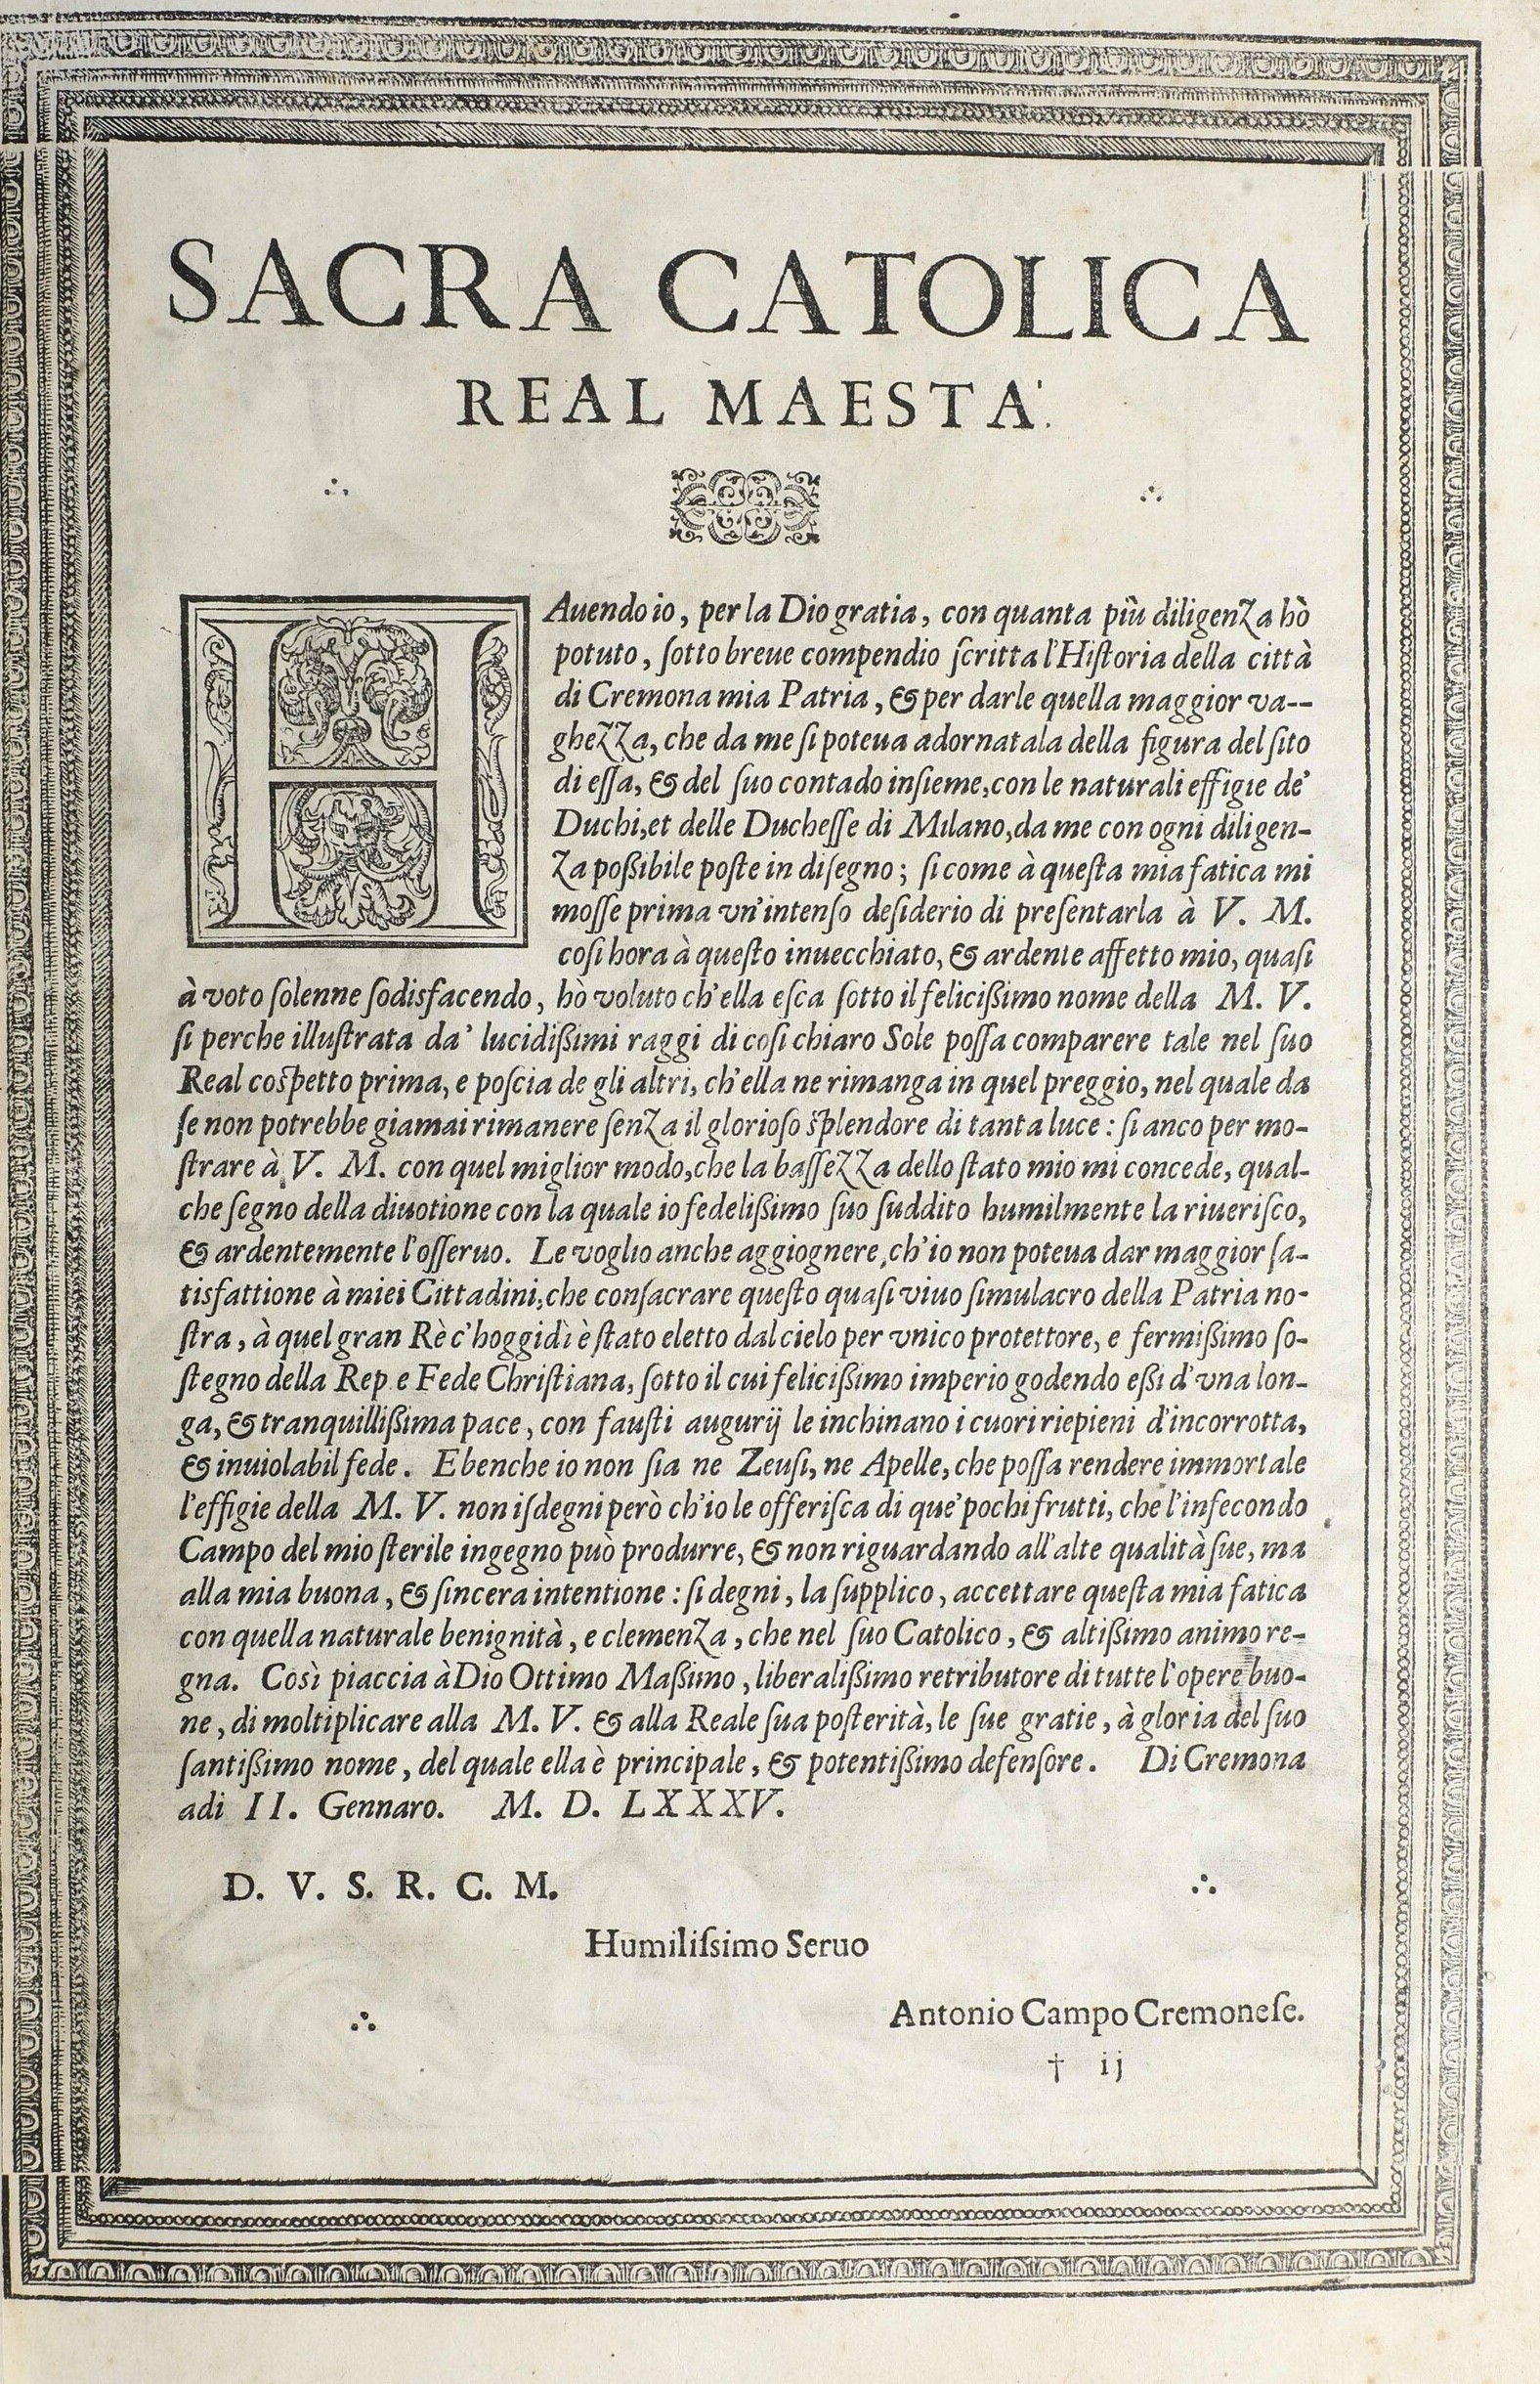 SACRA CATOLICA
REAL MAESTA'.
HAuendo io, per la Dio gratia, con quanta più diligenza hò
potuto, ſotto breue compendio ſcritta l'Hiſtoria della città
di Cremona mia Patria, & per darle quella maggior va--
ghezza, che da me ſi poteua adornatala della figura del ſito
di eſſa, & del ſuo contado inſieme, con le naturali effigie de'
Duchi, et delle Ducheſſe di Milano, da me con ogni diligen-
za poßibile poſte in diſegno; ſi come à queſta mia fatica mi
moſſe prima vn'intenſo deſiderio di preſentarla à V. M.
coſi hora à queſto inuecchiato, & ardente affetto mio, quaſi
à voto ſolenne ſodisfacendo, hò voluto ch'ella eſca ſotto il feliciſsimo nome della M. V.
ſi perche illuſtrata da' lucidißimi raggi di coſi chiaro Sole poſſa comparere tale nel ſuo
Real coſpetto prima, e poſcia de gli altri, ch'ella ne rimanga in quel preggio, nel quale da
ſe non potrebbe giamai rimanere ſenza il glorioſo ſplendore di tanta luce: ſi anco per mo-
ſtrare à V. M. con quel miglior modo, che la baſſezza dello ſtato mio mi concede, qual-
che ſegno della diuotione con la quale io fedelißimo ſuo ſuddito humilmente la riueriſco,
& ardentemente l'oſſeruo. Le voglio anche aggiognere, ch'io non poteua dar maggior ſa-
tisfattione à miei Cittadini, che conſacrare queſto quaſi viuo ſimulacro della Patria no-
ſtra, à quel gran Rè c'hoggidì è ſtato eletto dal cielo per vnico protettore, e fermißimo ſo-
ſtegno della Rep. e Fede Chriſtiana, ſotto il cui felicißimo imperio godendo eßi d'vna lon-
ga, & tranquillißima pace, con fauſti augurij le inchinano i cuori riepieni d'incorrotta,
& inuiolabil fede. E benche io non ſia ne Zeuſi, ne Apelle, che poſſa rendere immortale
l'effigie della M. V. non iſdegni però ch'io le offeriſca di que' pochi frutti, che l'infecondo
Campo del mio ſterile ingegno può produrre, & non riguardando all'alte qualità ſue, ma
alla mia buona, & ſincera intentione: ſi degni, la ſupplico, accettare queſta mia fatica
con quella naturale benignità, e clemenza, che nel ſuo Catolico, & altißimo animo re-
gna. Così piaccia à Dio Ottimo Maßimo, liberalißimo retributore di tutte l'opere buo-
ne, di moltiplicare alla M. V. & alla Reale ſua poſterità, le ſue gratie, à gloria del ſuo
ſantißimo nome, del quale ella è principale, & potentißimo defenſore. Di Cremona
adi II. Gennaro. M. D. LXXXV.
D. V. S. R. C. M.
Humiliſsimo Seruo
Antonio Campo Cremoneſe.
† ij